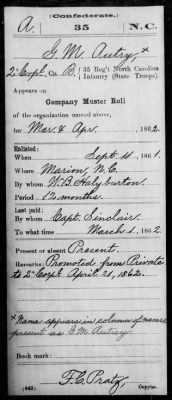 (Confederate.)
A. 35 N.C.
G. M. Autry, x
2" Corpl, Co. B, 35 Reg't North Carolina
Infantry (State Troops).
Appears on
Company Muster Roll
of the organization named above,
for Mar & Apr, 1862.
Enlisted:
When Sept. 11, 1861.
Where Marion, N.C.
By whom W. B. Halyburton
Period 12 months.
Last paid:
By whom Capt. Sinclair
To what time March 1, 1862
Present or absent Present.
Remarks: Promoted from Private
to 2" Corpl. April 21, 1862.
x Name appears in column of names
present as G. M. Autrey.
Book mark:
(642) F. C. Pratz
Copyist.